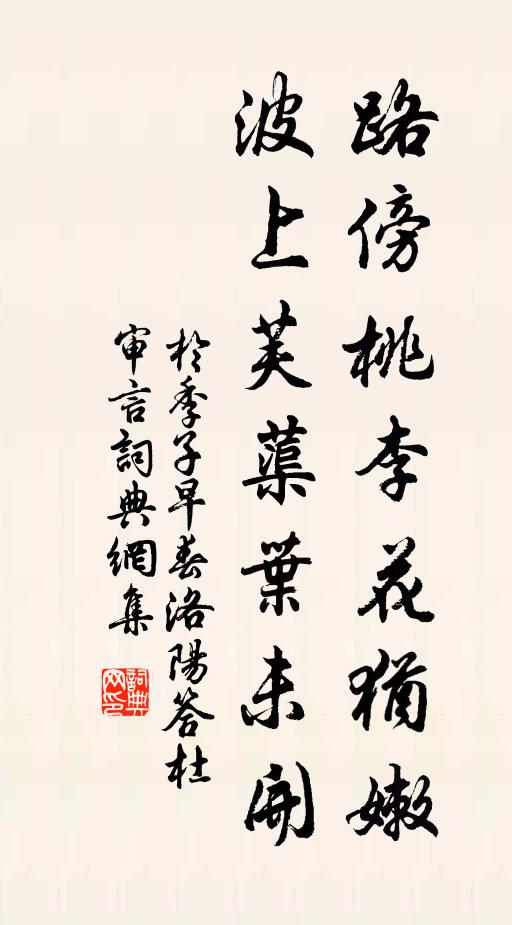 路傍桃李花猶嫩
波上芙蕖葉未開
於季子早春洛陽答杜
審言詞典網集
詞典
网印